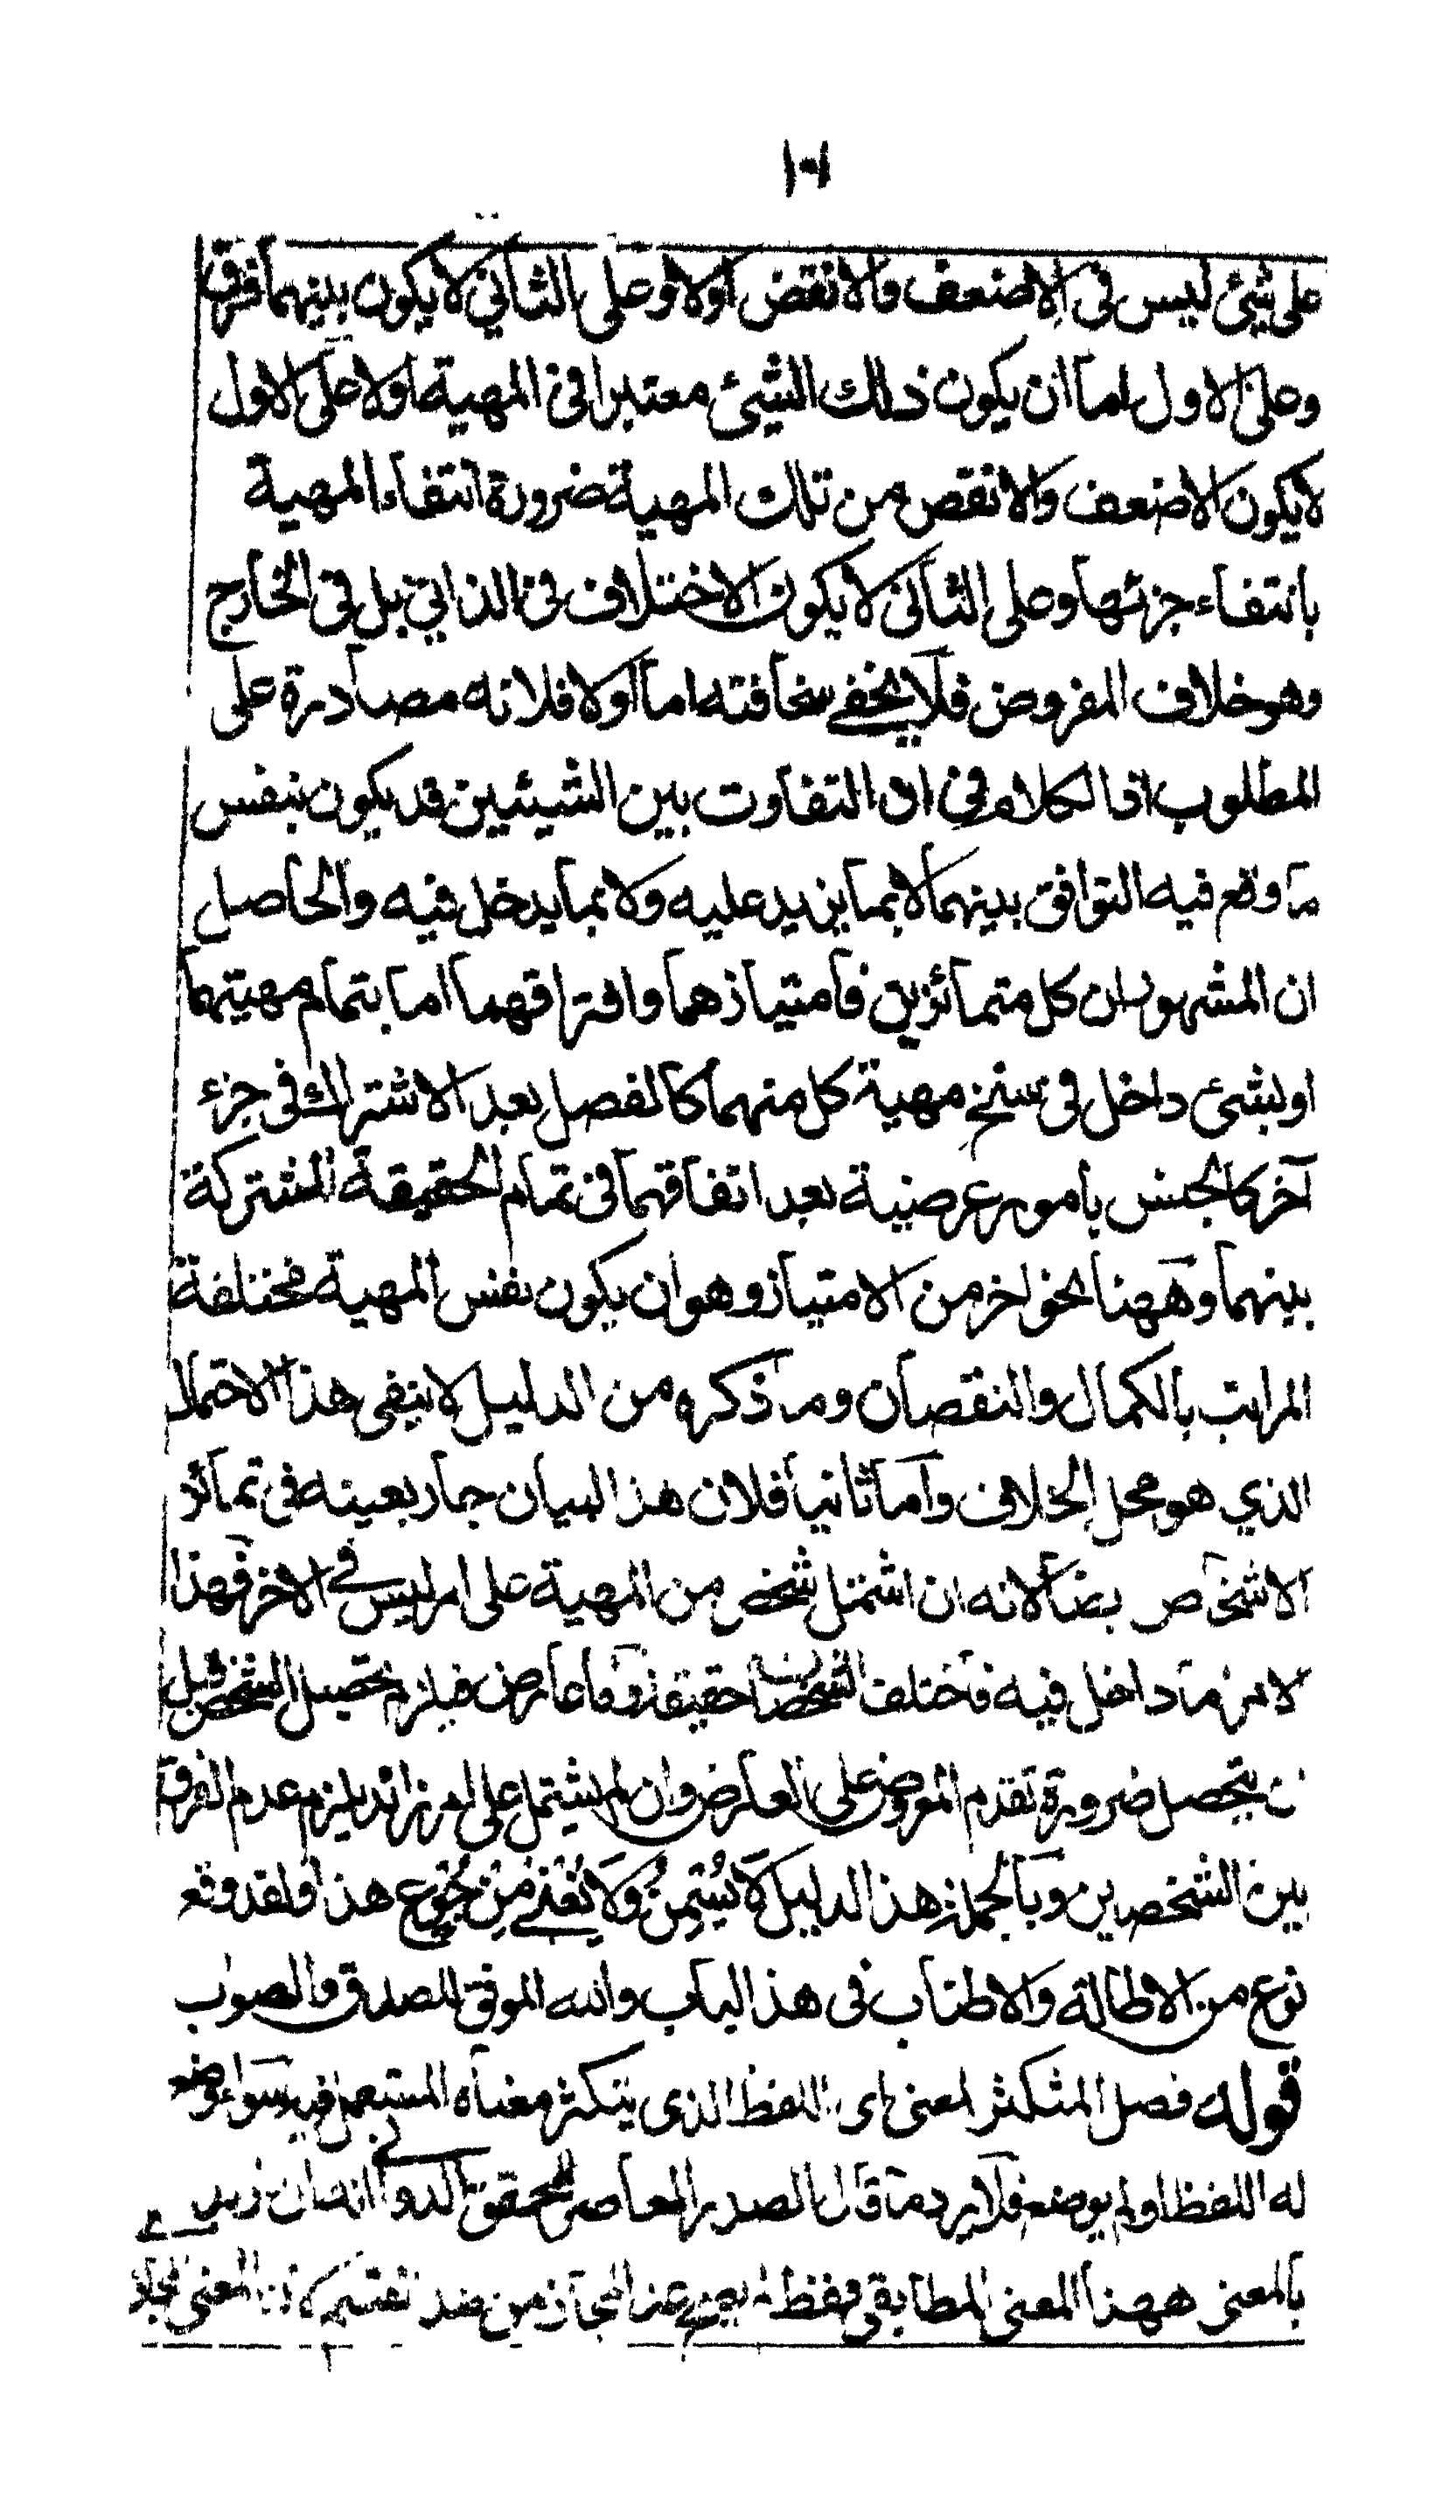 ١٠١
على شئ ليس فى الاضعف والانقص اولا وعلى الثانى لا يكون بينهما فرق
وعلى الاول اما ان يكون ذلك الشئ معتبرا فى المهية اولا على الاول
لا يكون الاضعف والانقص من تلك المهية ضرورة انتفاء المهية
بانتفاء جزئها وعلى الثانى لا يكون الاختلاف فى الذاتى بل فى الخارج
وهو خلاف المفروض فلا يخفى سخافته اما اولا فلانه مصادرة على
المطلوب اذ الكلام فى ان التفاوت بين الشيئين قد يكون بنفس
ما وقع فيه التوافق بينهما لا بما يزيد عليه ولا بما يدخل فيه والحاصل
ان المشهور ان كل متمائزين فامتيازهما وافتراقهما اما بتمام مهيتهما
او بشئ داخل فى سنخ مهية كل منهما كالفصل بعد الاشتراك فى جزء
آخر كالجنس بامور عرضية بعد اتفاقهما فى تمام الحقيقة المشتركة
بينهما وههنا نحو اخر من الامتياز وهو ان يكون نفس المهية مختلفة
المراتب بالكمال والنقصان وما ذكره من الدليل لا ينفى هذا الاحتمال
الذي هو محل الخلاف واما ثانيا فلان هذا البيان جار بعينه فى تمائز
الاشخاص يضا لانه ان اشتمل شخص من المهية على امر ليس فى الاخر فهذا
الامر ما داخل فيه فاختلف الشخصان حقيقة واما عارض فيلزم تحصيل الشخص قبل
ن يتحصل ضرورة تقدم المعروض على العارض وان لم يشتمل على امر زائد يلزم عدم الفرق
بين الشخصين وبالجملة هذا الدليل لا يُسْمِنُ وَلَا يُغْنِي مِنْ جُوْعٍ هذا ولقد وقع
نوع من الاطالة والاطناب فى هذا الباب والله الموفق للصدق والصواب
قوله فصل المتكثر المعنى اى اللفظ الذى يتكثر معناه المستعمل فيه سواء وضع
له اللفظ او لم يوضع فلا يرد ما قال الصدر المعاصر للمحقق الدوانى انه ان اريد
بالمعنى ههنا المعنى المطابقى فقط المجاز من المعنى